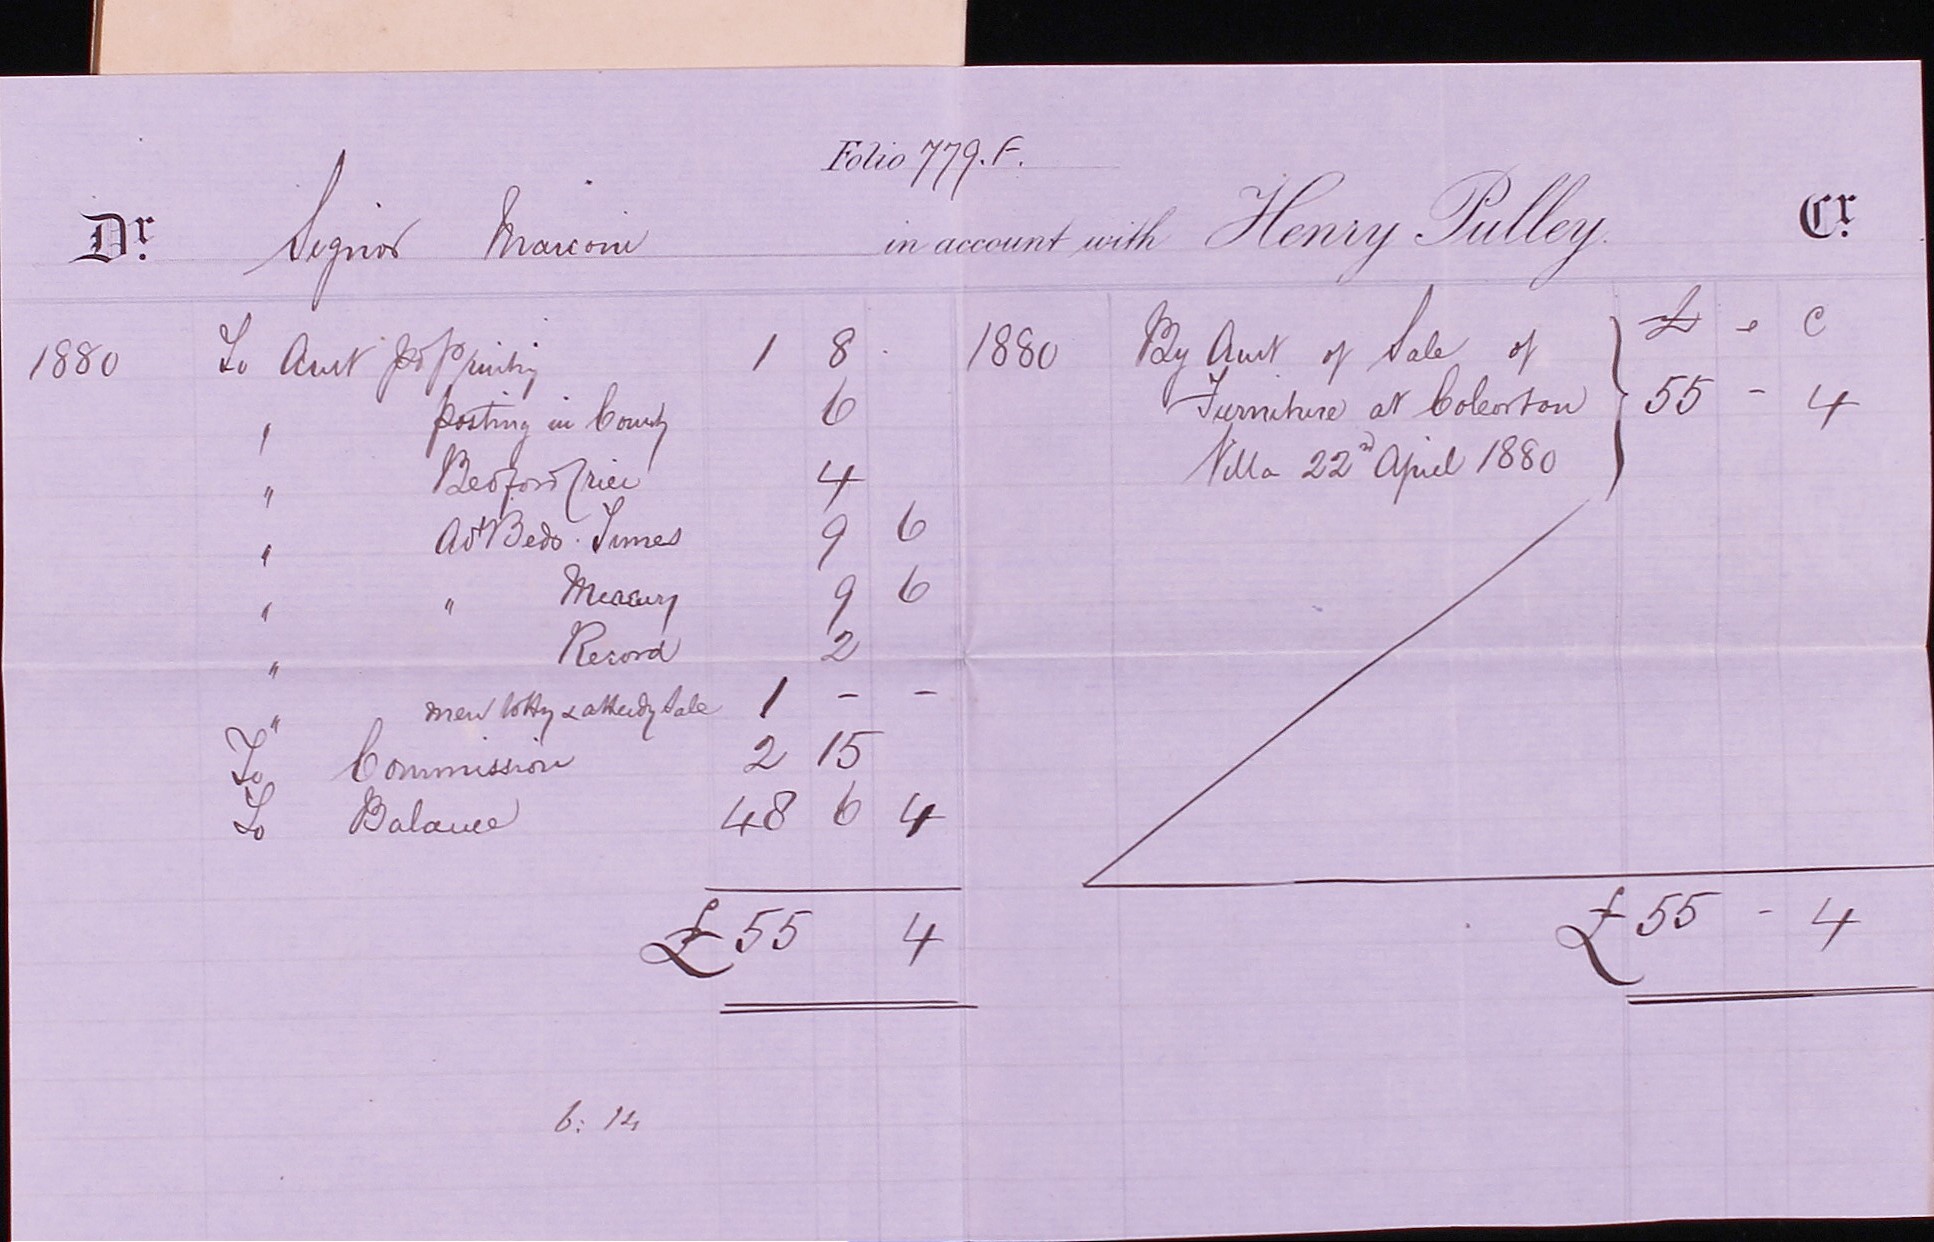 Folio 779. F.
Dr. Signor Marconi in account with Henry Pulley. Cr.
£ s
1880 To Amt pd printing 1 8
1880 By Amt of Sale of
" posting in County 6
Furniture at Coleorton 55 - 4
" Bedford Crier 4
Villa 22nd April 1880
" Adt Beds. Times 9 6
" " Mercury 9 6
" Record 2
" men lotty & attendg Sale 1 - -
To Commission 2 15
To Balance 48 6 4
£ 55 4
£ 55 - 4
6: 14